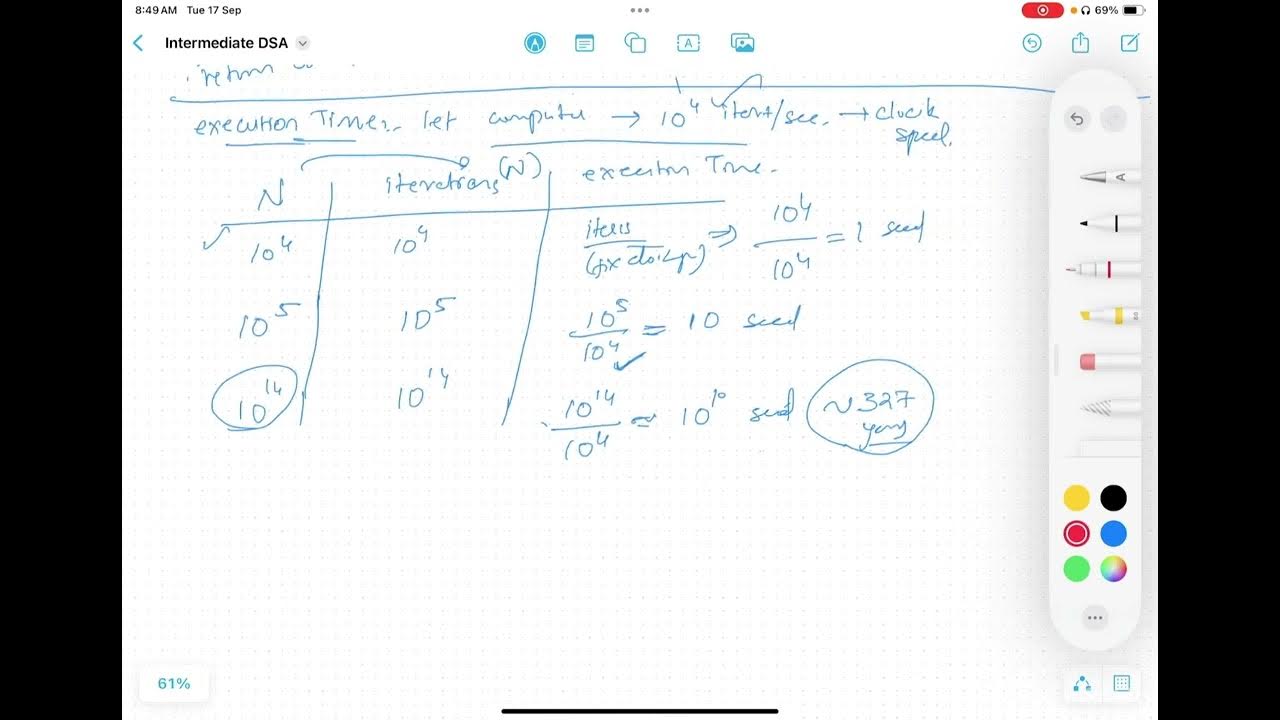 8:49 AM Tue 17 Sep
69%
Intermediate DSA
return
execution Time:- let computer → 10^4 itern/sec. → clock speed.
N iterations (N) execution Time.
10^4 10^4 iters ⇒ 10^4/10^4 = 1 secd
10^5 10^5 10^5/10^4 = 10 secd
10^14 10^14 10^14/10^4 ≈ 10^10 secd ~327 years
61%